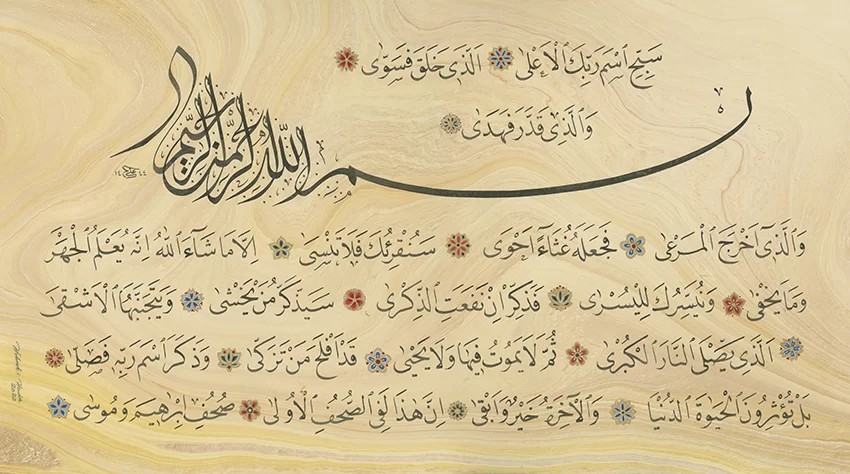 بِسْمِ اللّٰهِ الرَّحْمٰنِ الرَّحِيمِ
سَبِّحِ اسْمَ رَبِّكَ الْاَعْلٰى اَلَّذِى خَلَقَ فَسَوّٰى
وَالَّذِى قَدَّرَ فَهَدٰى
١٤٤٤
وَالَّذِٓى اَخْرَجَ الْمَرْعٰى فَجَعَلَهُ غُثَٓاءً اَحْوٰى سَنُقْرِئُكَ فَلَا تَنْسٰى اِلَّا مَا شَٓاءَ اللّٰهُ اِنَّهُ يَعْلَمُ الْجَهْرَ
وَمَا يَخْفٰى وَنُيَسِّرُكَ لِلْيُسْرٰى فَذَكِّرْ اِنْ نَفَعَتِ الذِّكْرٰى سَيَذَّكَّرُ مَنْ يَخْشٰى وَيَتَجَنَّبُهَا الْاَشْقٰى
اَلَّذِى يَصْلَى النَّارَ الْكُبْرٰى ثُمَّ لَا يَمُوتُ فِيهَا وَلَا يَحْيٰى قَدْ اَفْلَحَ مَنْ تَزَكّٰى وَذَكَرَ اسْمَ رَبِّهِ فَصَلّٰى
بَلْ تُؤْثِرُونَ الْحَيٰوةَ الدُّنْيَا وَالْاٰخِرَةُ خَيْرٌ وَاَبْقٰى اِنَّ هٰذَا لَفِى الصُّحُفِ الْاُولٰى صُحُفِ اِبْرٰهِيمَ وَمُوسٰى